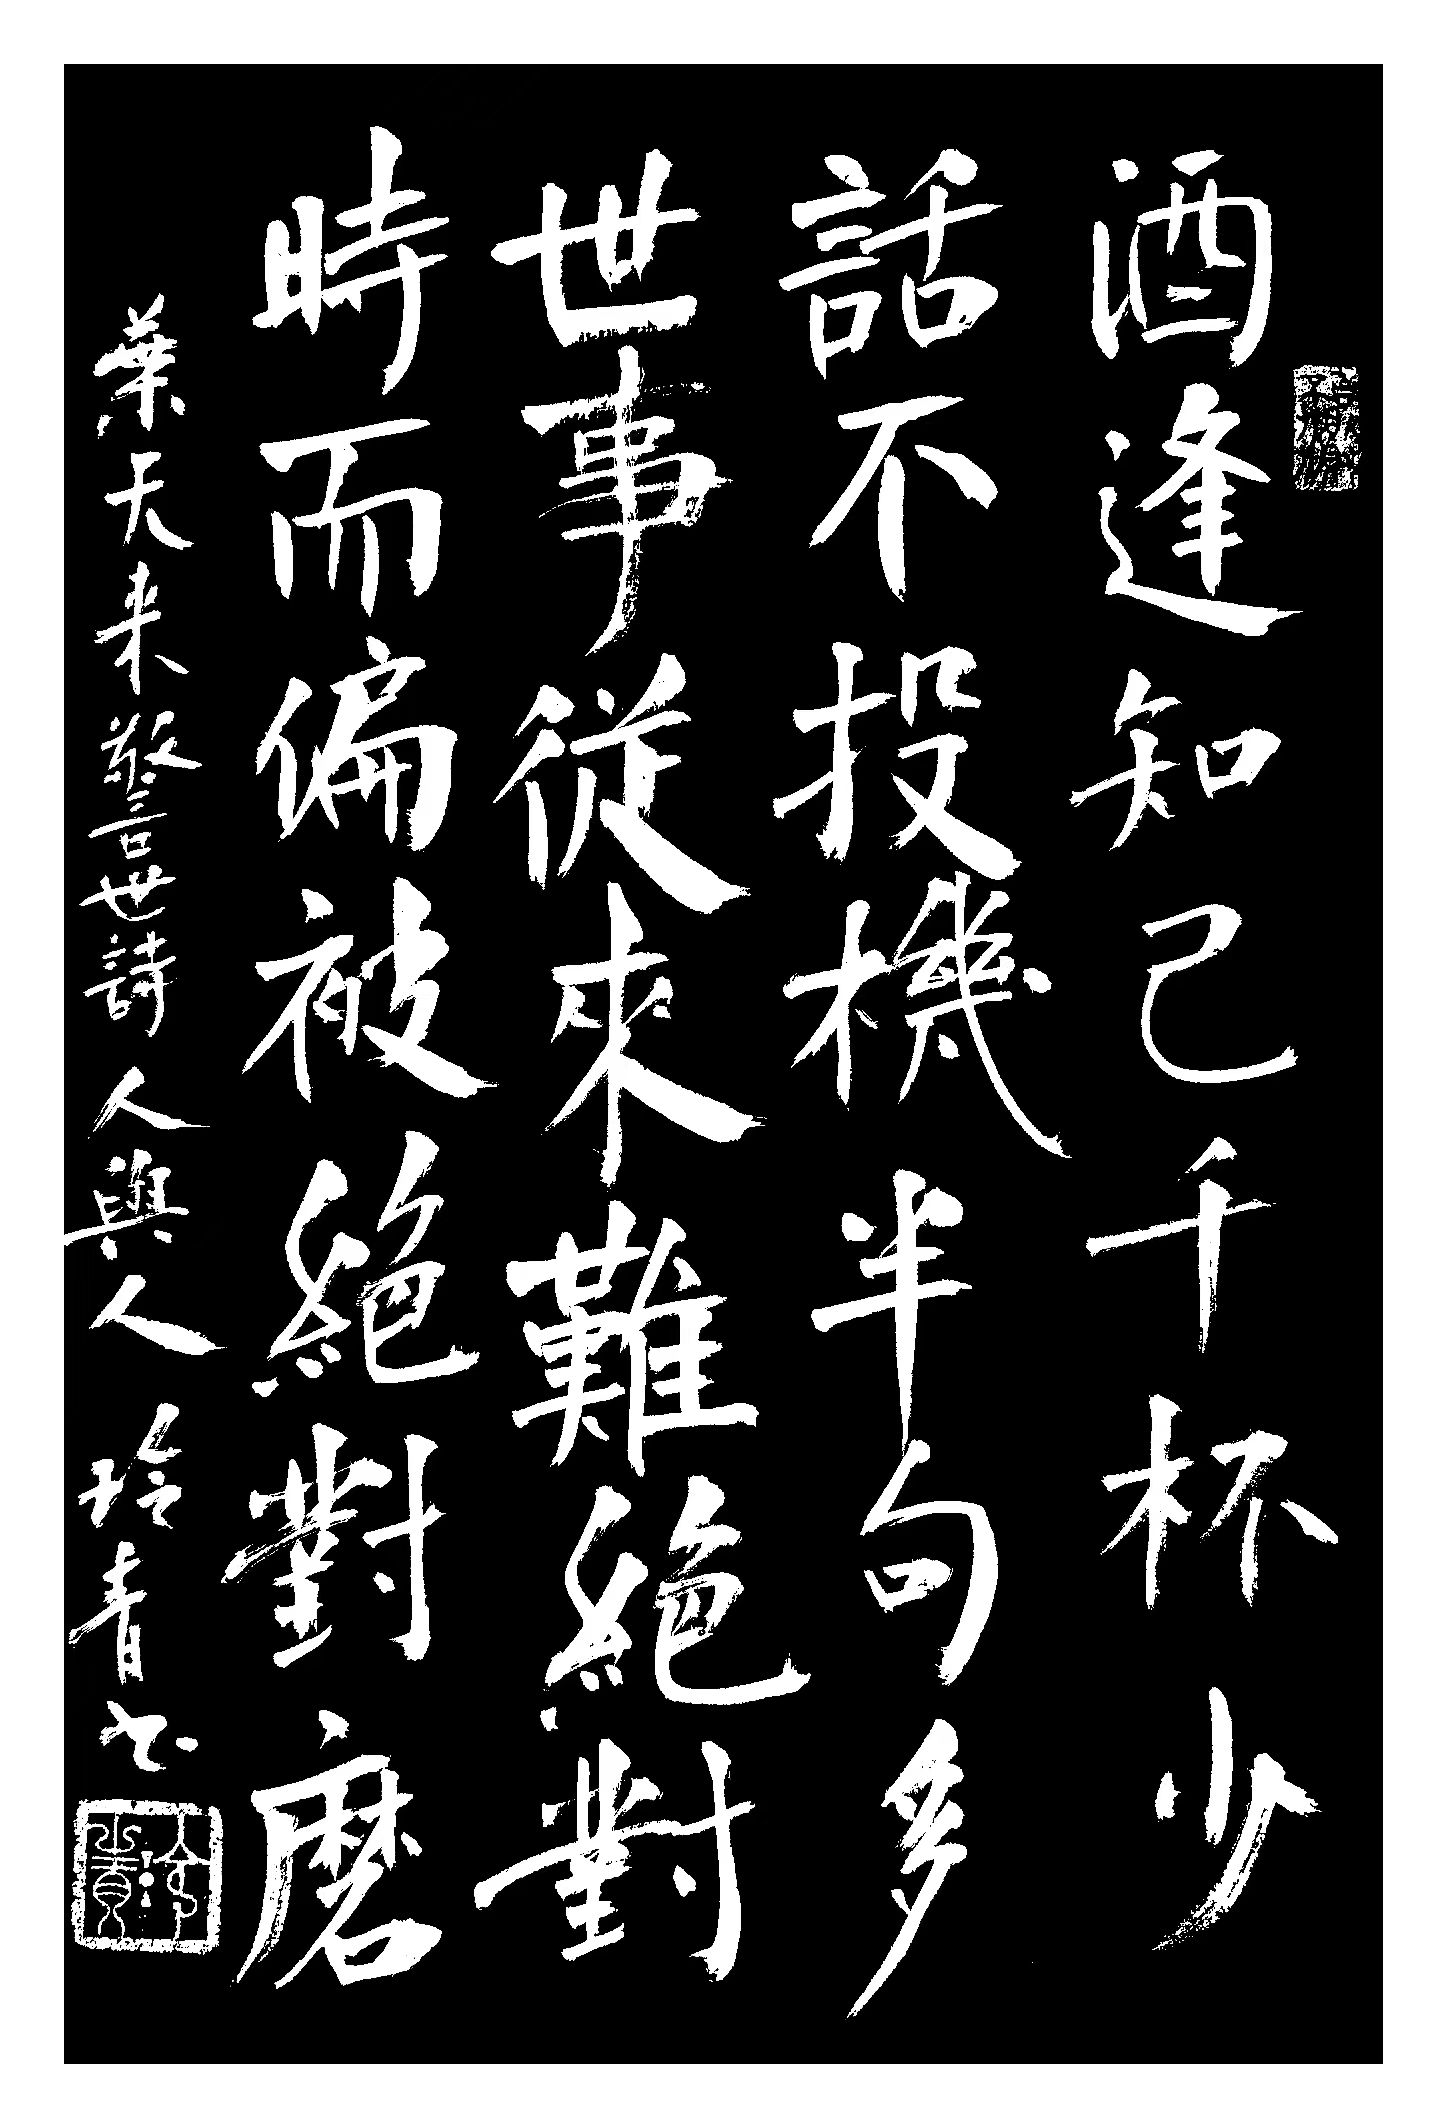 酒逢知己千杯少
話不投機半句多
世事從來難絕對
時而偏被絕對磨
葉天来警世詩人與人玲青书